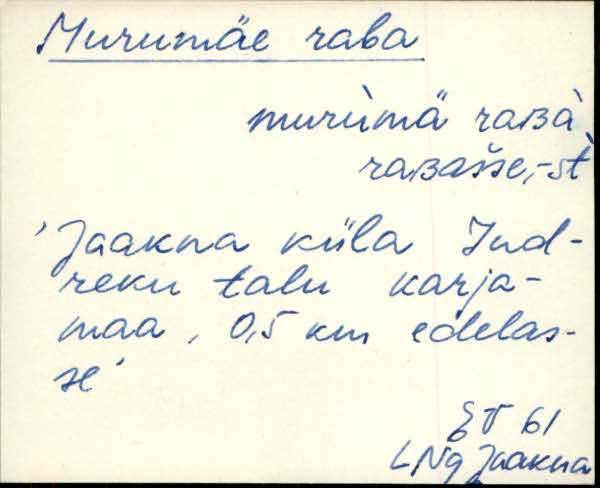 Murumäe raba
murù̬mä raʙà
raʙašse, -st̀
'Jaakna küla Ind-
reku talu karja-
maa, 0,5 km edelas-
se'
EV 61
LNg Jaakna